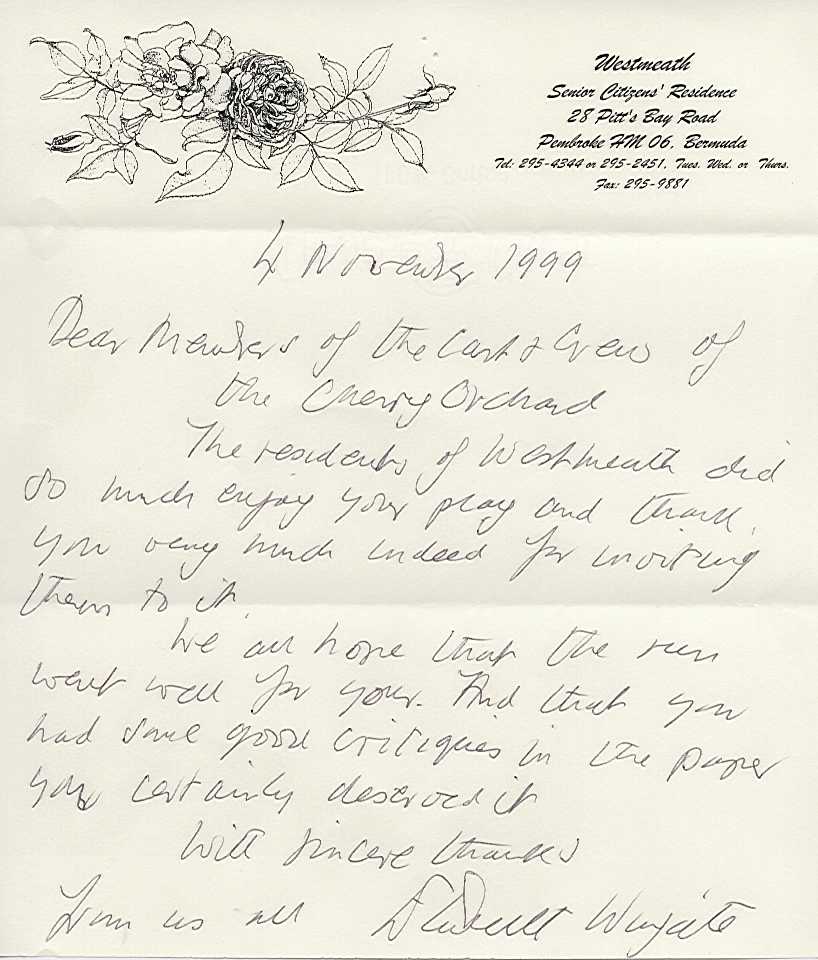 Westmeath
Senior Citizens' Residence
28 Pitt's Bay Road
Pembroke HM 06, Bermuda
Tel: 295-4344 or 295-2451, Tues. Wed. or Thurs.
Fax: 295-9881
4 November 1999
Dear Members of the Cast & Crew of
the Cherry Orchard
The residents of Westmeath did
so much enjoy your play and thank
you very much indeed for inviting
them to it.
We all hope that the run
went well for you. And that you
had some good critiques in the paper
you certainly deserved it
With sincere thanks
from us all Wingate